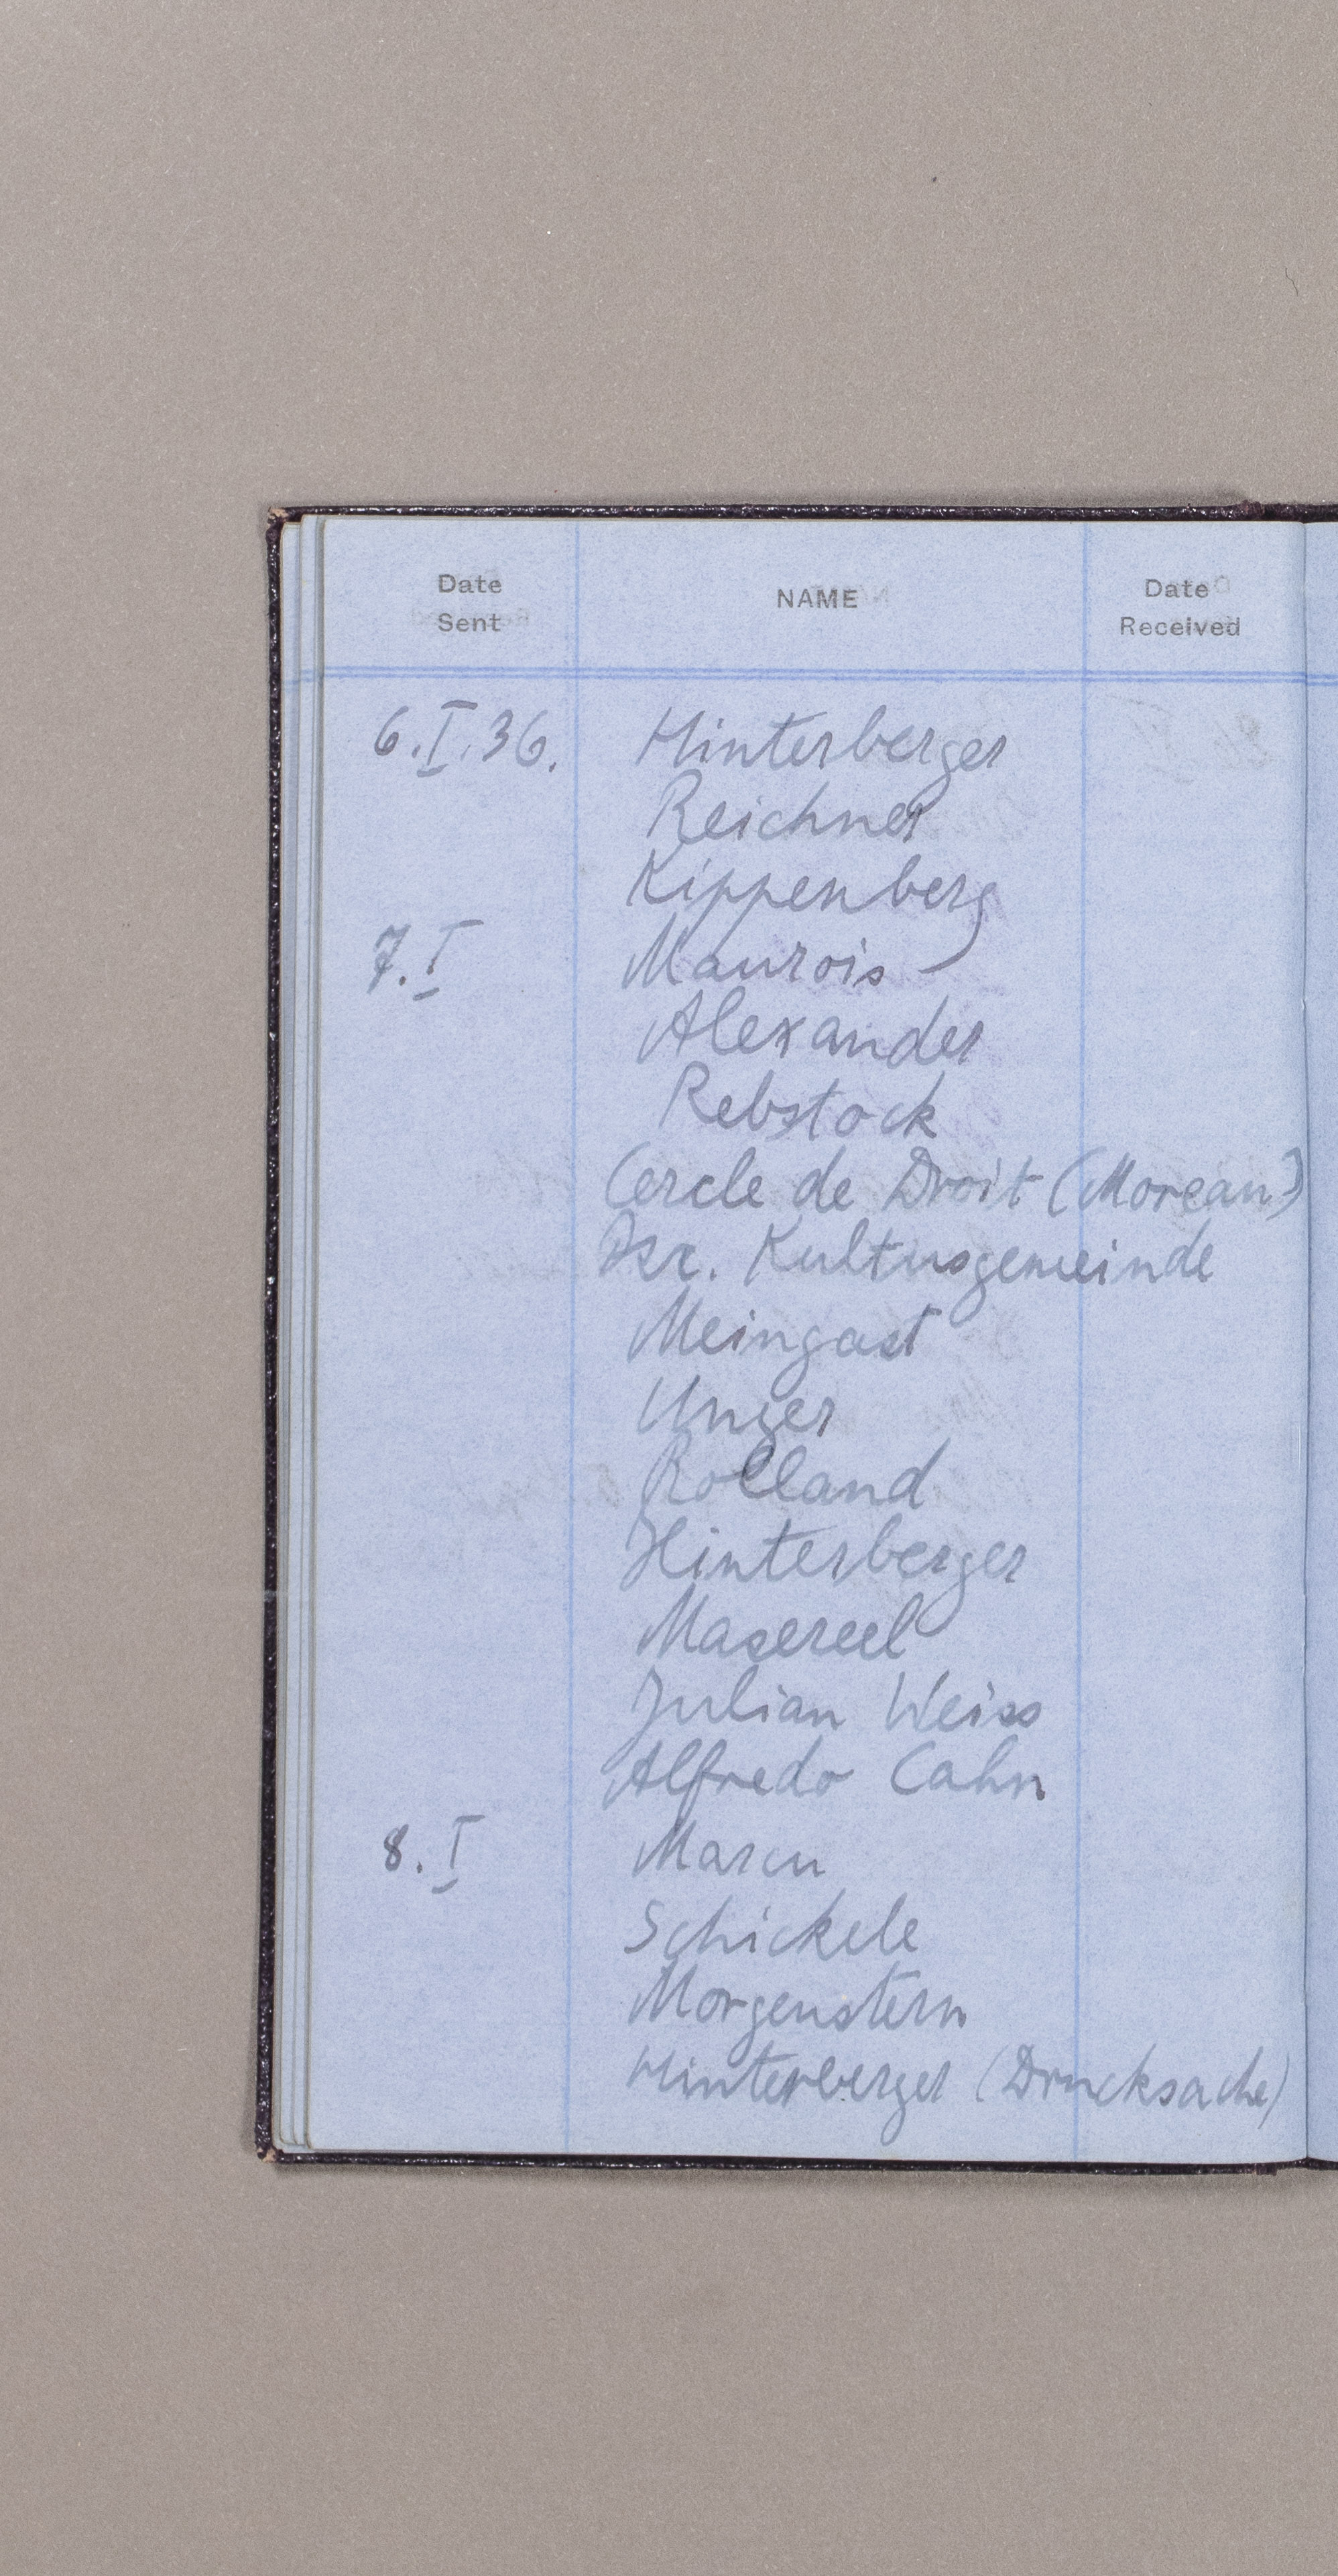 Date Sent NAME Date Received
6.I.36. Hinterberger
Reichner
Kippenberg
7.I Maurois
Alexander
Rebstock
Cercle de Droit (Morean?)
Isr. Kultusgemeinde
Meingast
Unger
Rolland
Hinterberger
Masereel
Julian Weiss
Alfredo Cahn
8.I Marcu
Schickele
Morgenstern
Hinterberger (Drucksache)